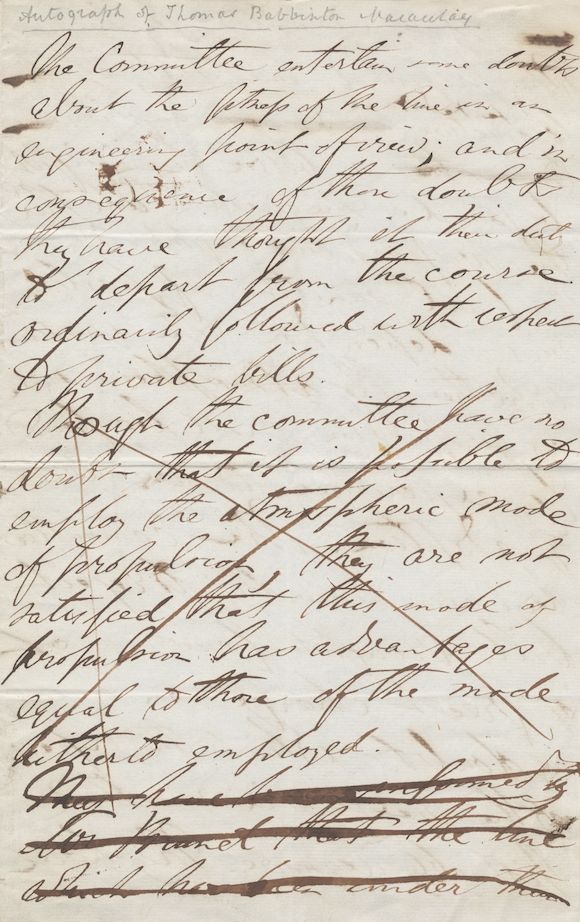 Autograph of Thomas Babbinton Macaulay
The Committee entertain some doubts
about the fitness of the line in an
engineering point of view; and in
consequence of those doubts
they have thought it their duty
to depart from the course
ordinarily followed with respect
to private bills.
Though the committee have no
doubt that it is possible to
employ the atmospheric mode
of propulsion, they are not
satisfied that this mode of
propulsion has advantages
equal to those of the mode
hitherto employed.
They have been informed by
Mr Brunel that the line
which has been under their